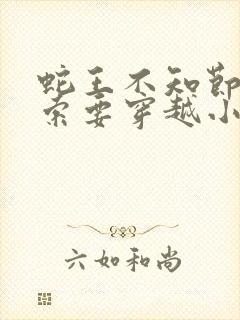 蛇王不知节
索要穿越小
六如和尚